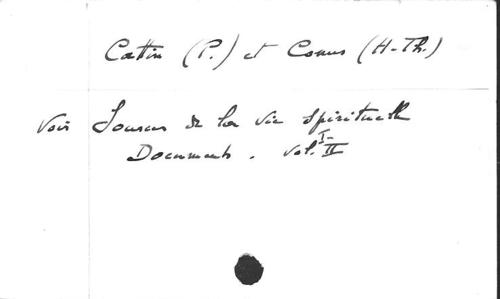 Cattin (P.) et Conus (H-Th.)
Voir Sources de la vie spirituelle
Documents. Vol. I-II